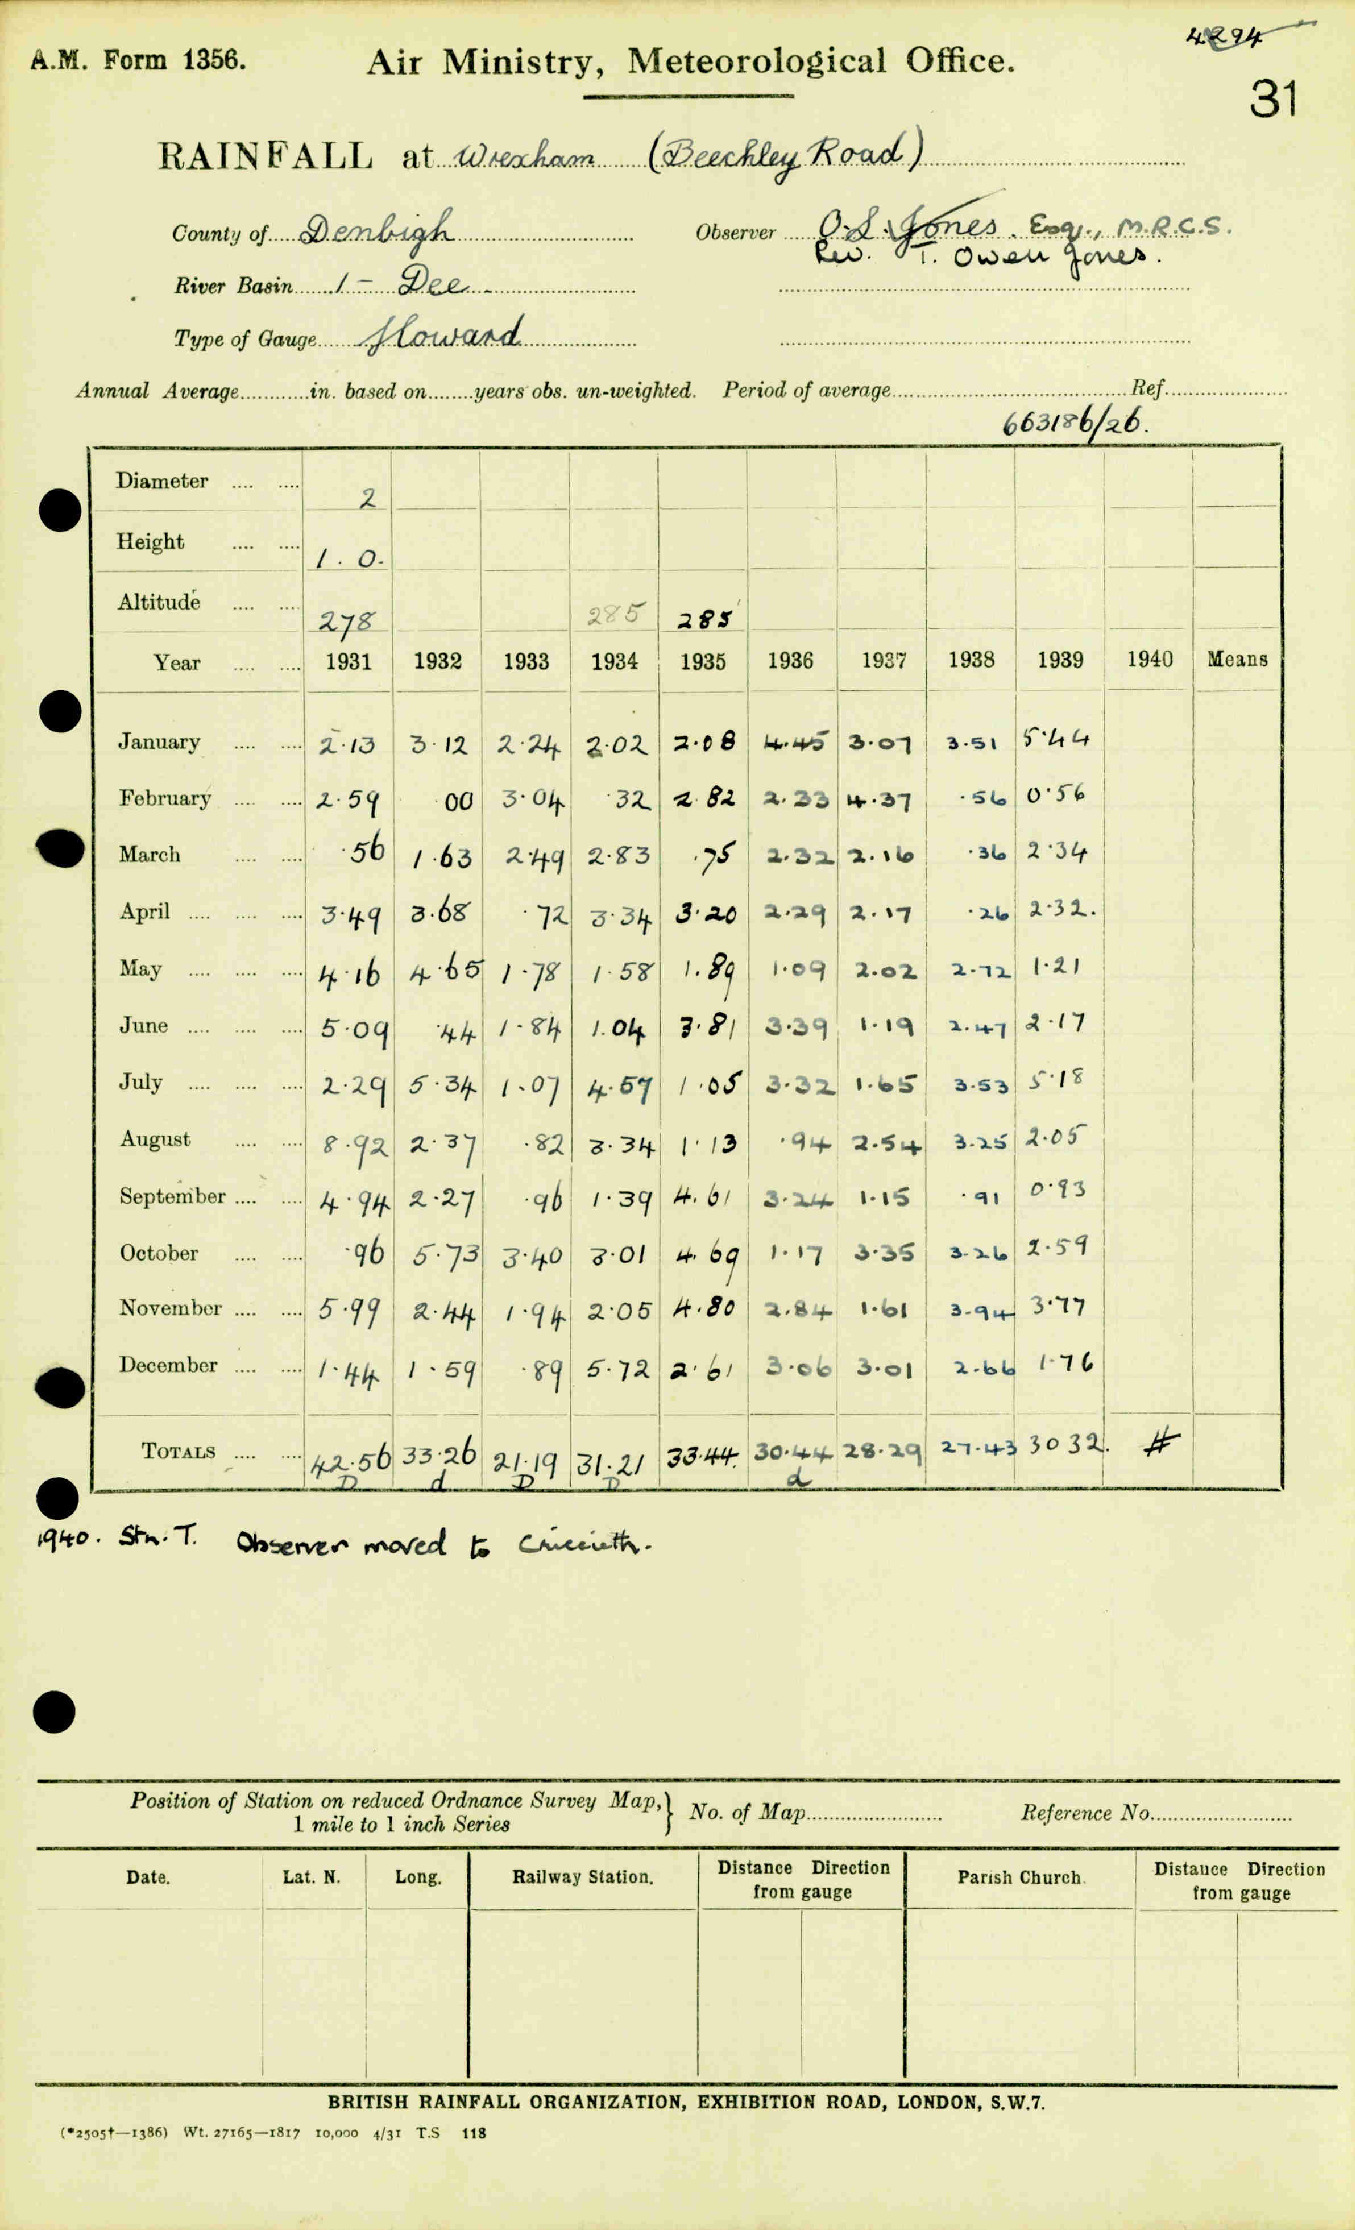 4294
A.M. Form 1356. Air Ministry, Meteorological Office.
31
RAINFALL at Wrexham (Beechley Road)
County of Denbigh Observer O. S. Jones. Esq., M.R.C.S.
Rev. T. Owen Jones.
River Basin 1 - Dee
Type of Gauge Howard
Annual Average............in. based on........years obs. un-weighted. Period of average........................................Ref.....................
663186/26.
Diameter .... .... 2
Height .... .... 1. 0.
Altitude .... .... 278 285 285
Year .... .... 1931 1932 1933 1934 1935 1936 1937 1938 1939 1940 Means
January .... .... 2·13 3·12 2·24 2·02 2·08 4·45 3·07 3·51 5·44
February .... .... 2·59 00 3·04 ·32 2·82 2·33 4·37 ·56 0·56
March .... .... ·56 1·63 2·49 2·83 ·75 2·32 2·16 ·36 2·34
April .... .... .... 3·49 3·68 ·72 3·34 3·20 2·29 2·17 ·26 2·32.
May .... .... .... 4·16 4·65 1·78 1·58 1·89 1·09 2·02 2·72 1·21
June .... .... .... 5·09 ·44 1·84 1·04 3·81 3·39 1·19 2·47 2·17
July .... .... .... 2·29 5·34 1·07 4·57 1·05 3·32 1·65 3·53 5·18
August .... .... 8·92 2·37 ·82 3·34 1·13 ·94 2·54 3·25 2·05
September .... .... 4·94 2·27 ·96 1·39 4·61 3·24 1·15 ·91 0·93
October .... .... ·96 5·73 3·40 3·01 4·69 1·17 3·35 3·26 2·59
November .... .... 5·99 2·44 1·94 2·05 4·80 2·84 1·61 3·94 3·77
December .... .... 1·44 1·59 ·89 5·72 2·61 3·06 3·01 2·66 1·76
TOTALS .... .... 42·56 33·26 21·19 31·21 33·44. 30·44 28·29 27·43 30 32. #
D d D D d
1940. Stn. T. Observer moved to Criccieth.
Position of Station on reduced Ordnance Survey Map, } No. of Map........................ Reference No.........................
1 mile to 1 inch Series
Date. Lat. N. Long. Railway Station. Distance Direction Parish Church. Distance Direction
from gauge from gauge
BRITISH RAINFALL ORGANIZATION, EXHIBITION ROAD, LONDON, S.W.7.
(*2505†—1386) Wt. 27165—1817 10,000 4/31 T.S 118